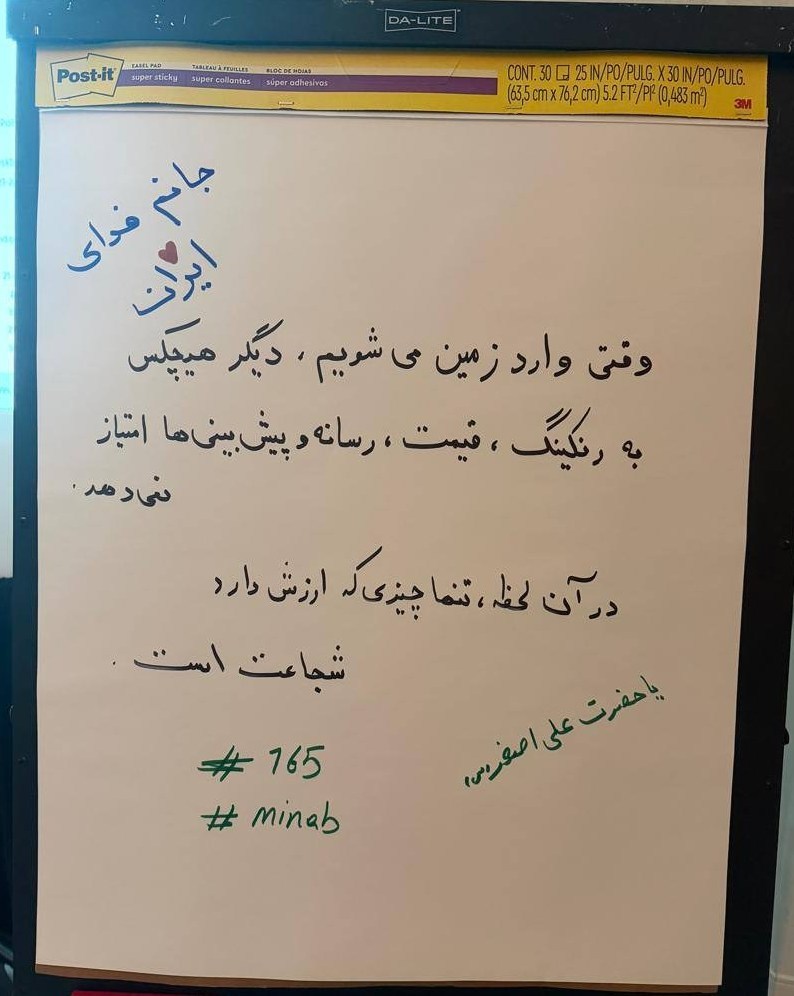 DA-LITE
Post-it
EASEL PAD
super sticky
TABLEAU À FEUILLES
super collantes
BLOC DE HOJAS
súper adhesivas
CONT. 30 25 IN/PO/PULG. X 30 IN/PO/PULG.
(63,5 cm x 76,2 cm) 5.2 FT²/PI² (0,483 m²)
3M
جانم فدای
ایران
وقتی وارد زمین می شویم ، دیگر هیچکس
به رنکینگ ، قیمت ، رسانه و پیش بینی ها امتیاز
نمی دهد.
در آن لحظه، تنها چیزی که ارزش دارد
شجاعت است .
یا حضرت علی اصغر (س)
# 165
# minab